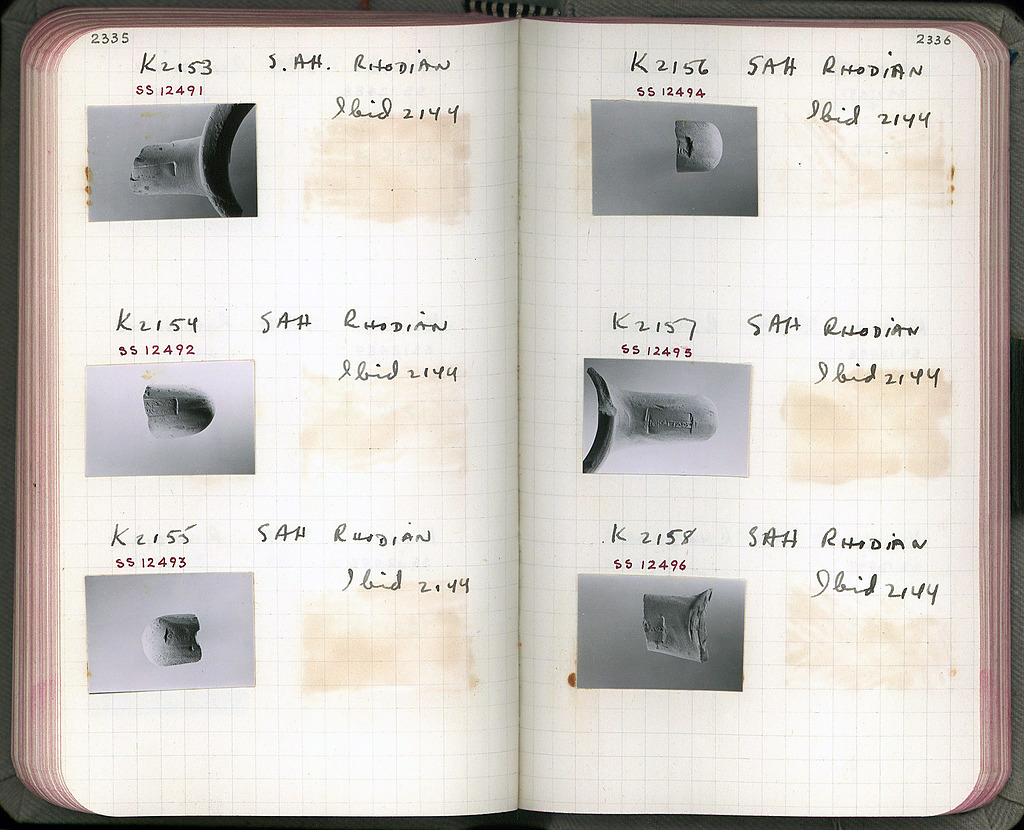 2335
K 2153 S.AH. RHODIAN
SS 12491
Ibid 2144
K 2154 SAH RHODIAN
SS 12492
Ibid 2144
K 2155 SAH RHODIAN
SS 12493
Ibid 2144
2336
K 2156 SAH RHODIAN
SS 12494
Ibid 2144
K 2157 SAH RHODIAN
SS 12495
Ibid 2144
K 2158 SAH RHODIAN
SS 12496
Ibid 2144